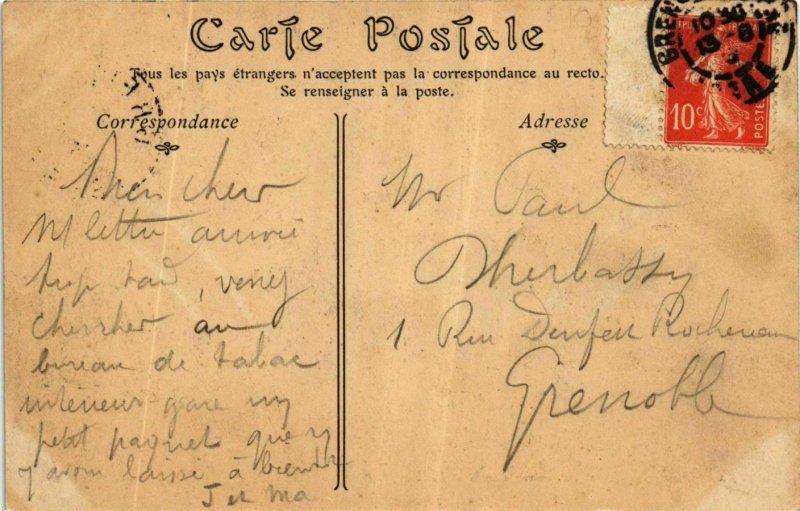 Carte Postale
Tous les pays étrangers n'acceptent pas la correspondance au recto.
Se renseigner à la poste.
Correspondance
Mon cher
lettre arrivée
trop tard, venez
chercher au
bureau de tabac
intérieur gare un
petit paquet que n
y avons laissé à bientôt
J et Ma
Adresse
Mr Paul
Dherbassy
1 Rue Denfert Rochereau
Grenoble
10c
POSTES